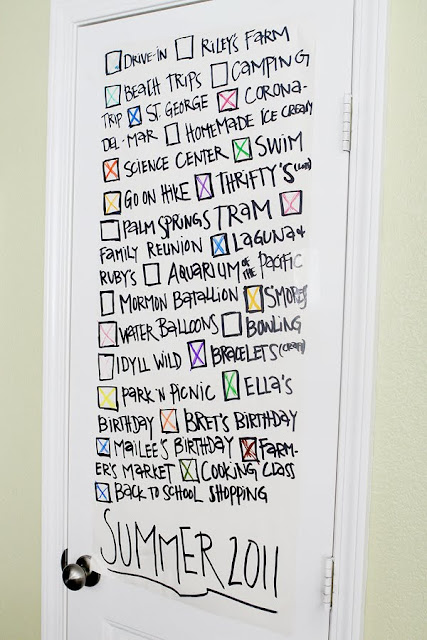 DRIVE-IN RILEY'S FARM
BEACH TRIPS CAMPING
TRIP ST. GEORGE CORONA-
DEL-MAR HOMEMADE ICE CREAM
SCIENCE CENTER SWIM
GO ON HIKE THRIFTY'S
PALM SPRINGS TRAM
FAMILY REUNION LAGUNA &
RUBY'S AQUARIUM OF THE PACIFIC
MORMON BATALLION S'MORES
WATER BALLOONS BOWLING
IDYLL WILD BRACELETS (CRAFT)
PARK 'N PICNIC ELLA'S
BIRTHDAY BRET'S BIRTHDAY
MAILEE'S BIRTHDAY FARM-
ER'S MARKET COOKING CLASS
BACK TO SCHOOL SHOPPING
SUMMER 2011